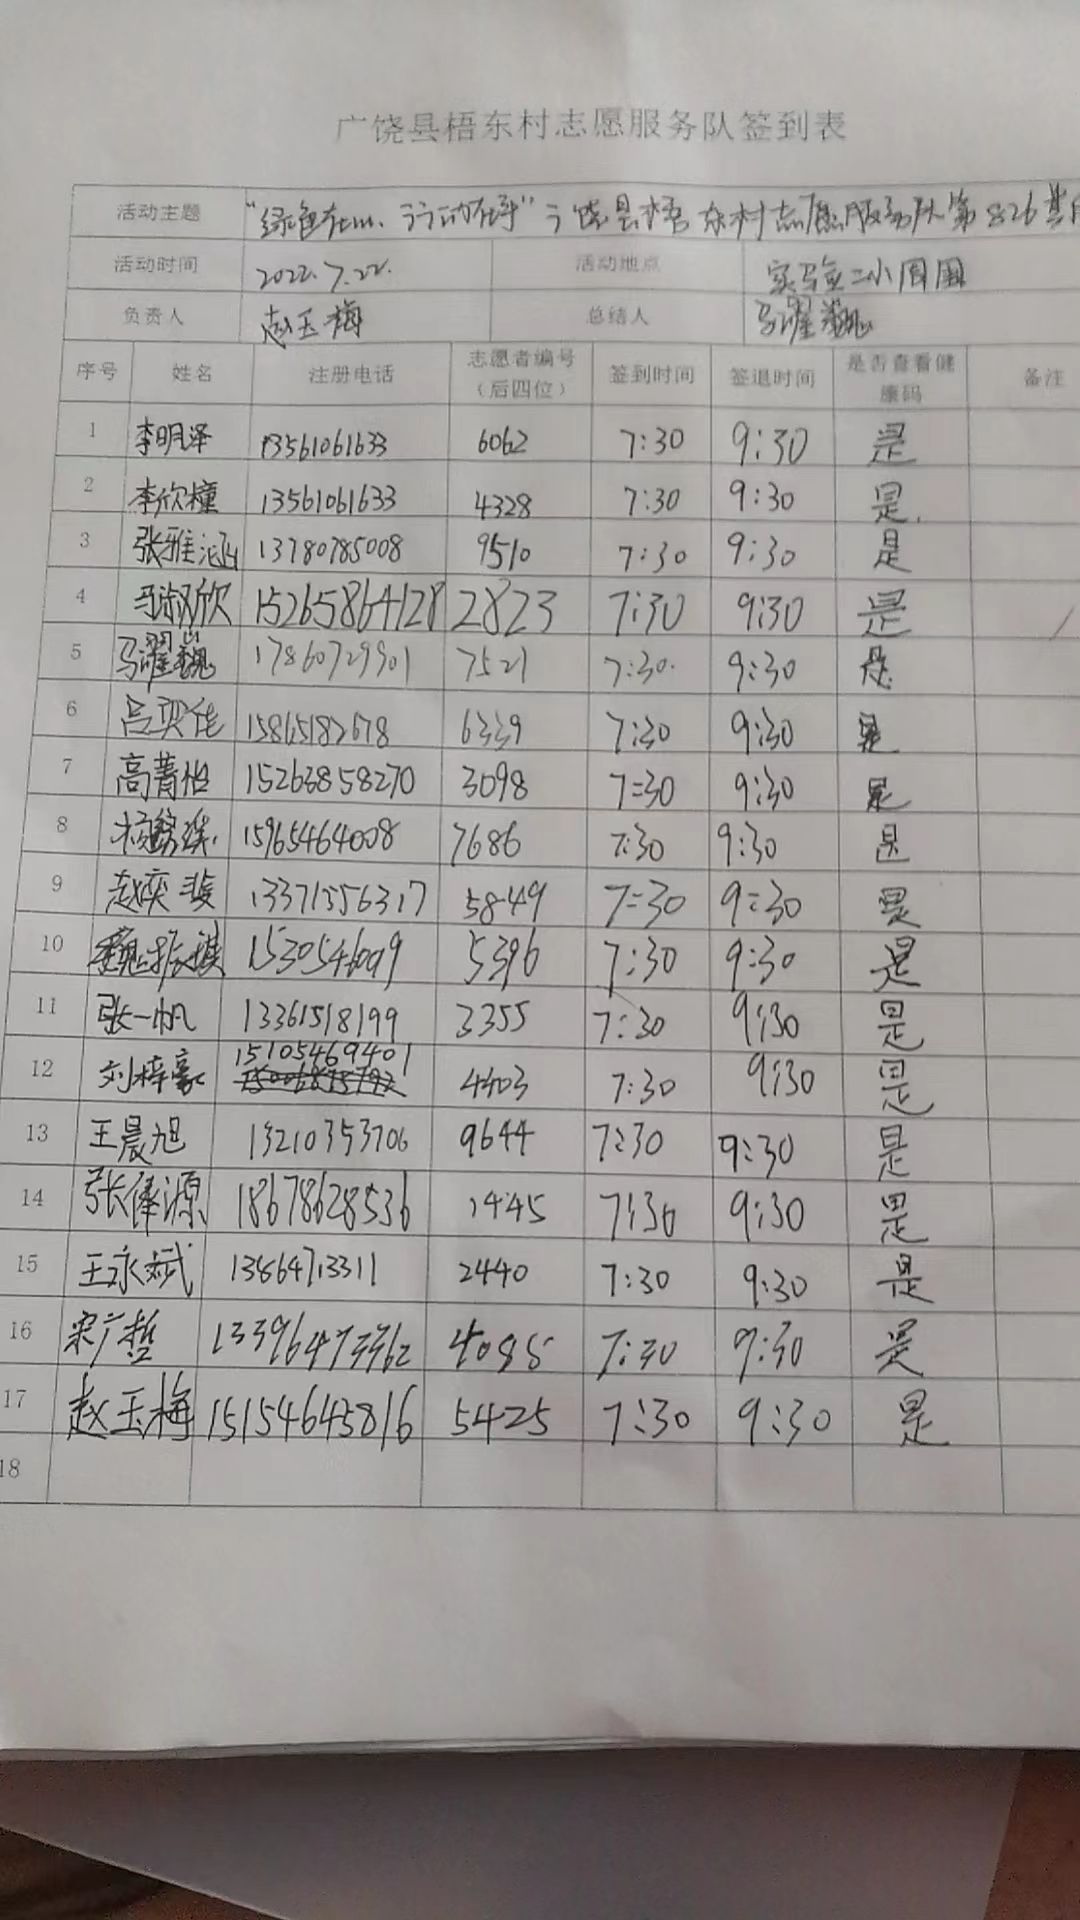 广饶县梧东村志愿服务队签到表
活动主题 "绿色在心、行动在手"广饶县梧东村志愿服务队第826期
活动时间 2022.7.22. 活动地点 实验二小周围
负责人 赵玉梅 总结人 马濯巍
序号 姓名 注册电话 志愿者编号（后四位） 签到时间 签退时间 是否查看健康码 备注
1 李明泽 13561061633 6062 7:30 9:30 是
2 李欣橦 13561061633 4328 7:30 9:30 是.
3 张雅涵 13780785008 9510 7:30 9:30 是
4 马淑欣 15265864128 2823 7:30 9:30 是
5 马濯巍 17860729901 7521 7:30. 9:30 是
6 吕奕佳 15865182678 6339 7:30 9:30 是
7 高菁怡 15263858270 3098 7:30 9:30 是
8 15965464008 7686 7:30 9:30 是
9 赵奕斐 13371556317 5849 7:30 9:30 是
10 魏振祺 1530546099 5396 7:30 9:30 是
11 张一帆 13361518199 3355 7:30 9:30 是
12 刘梓豪 15105469401 4403 7:30 9:30 是
13 王晨旭 13210353706 9644 7:30 9:30 是
14 张俸源 18678628536 1445 7:30 9:30 是
15 王永斌 13864713311 2440 7:30 9:30 是
16 宋广哲 13396473362 4085 7:30 9:30 是
17 赵玉梅 15154645816 5425 7:30 9:30 是
18